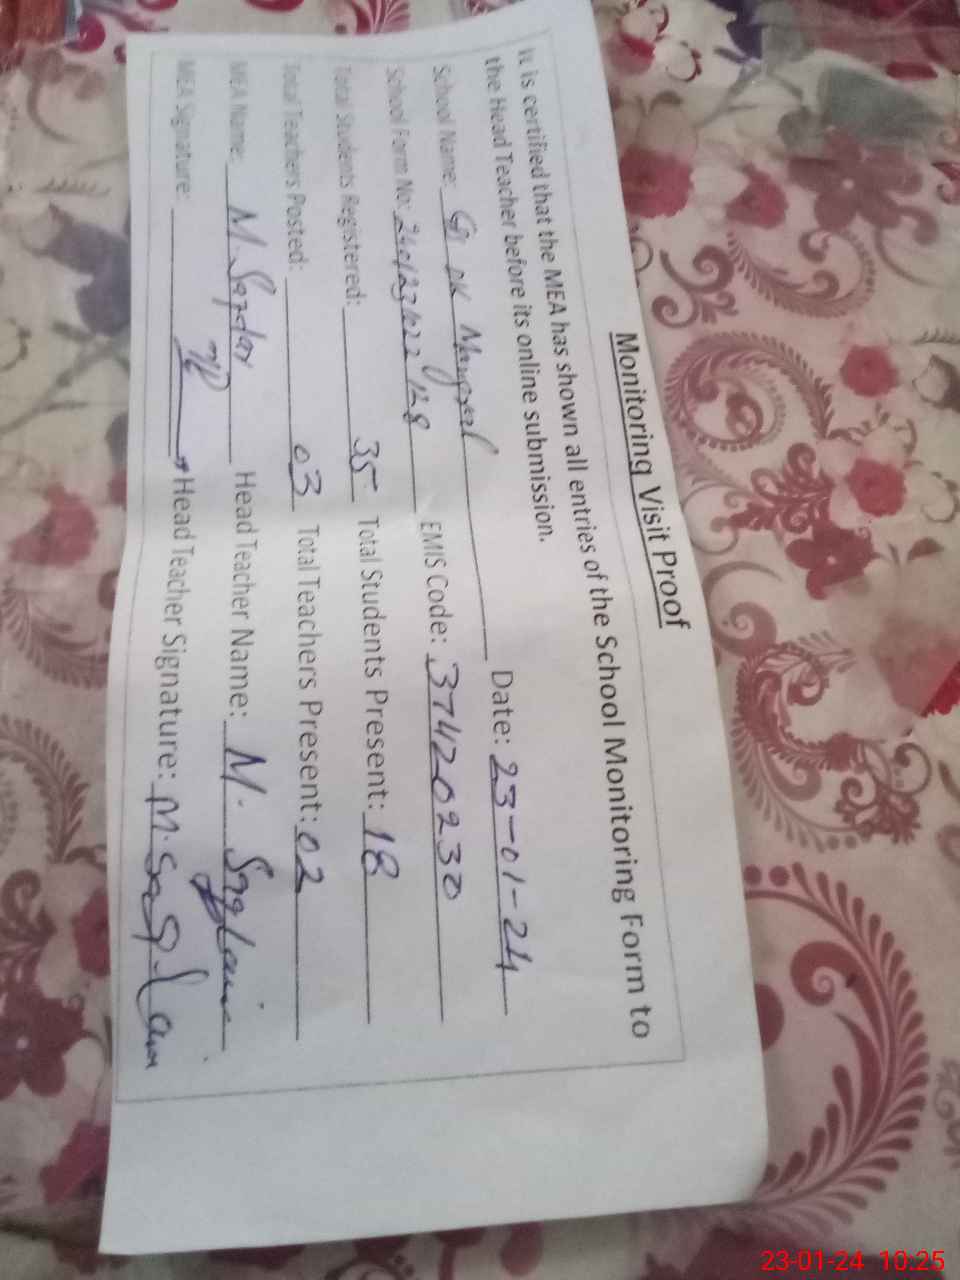 Monitoring Visit Proof
It is certified that the MEA has shown all entries of the School Monitoring Form to
the Head Teacher before its online submission.
School Name: Date: 23-01-24
School Form No: EMIS Code: 37420230
Total Students Registered: 35 Total Students Present: 18
Total Teachers Posted: 03 Total Teachers Present: 02
MEA Name: M. Safdar Head Teacher Name: M. Saqlain
MEA Signature: Head Teacher Signature: M. Saqlain
23-01-24 10:25